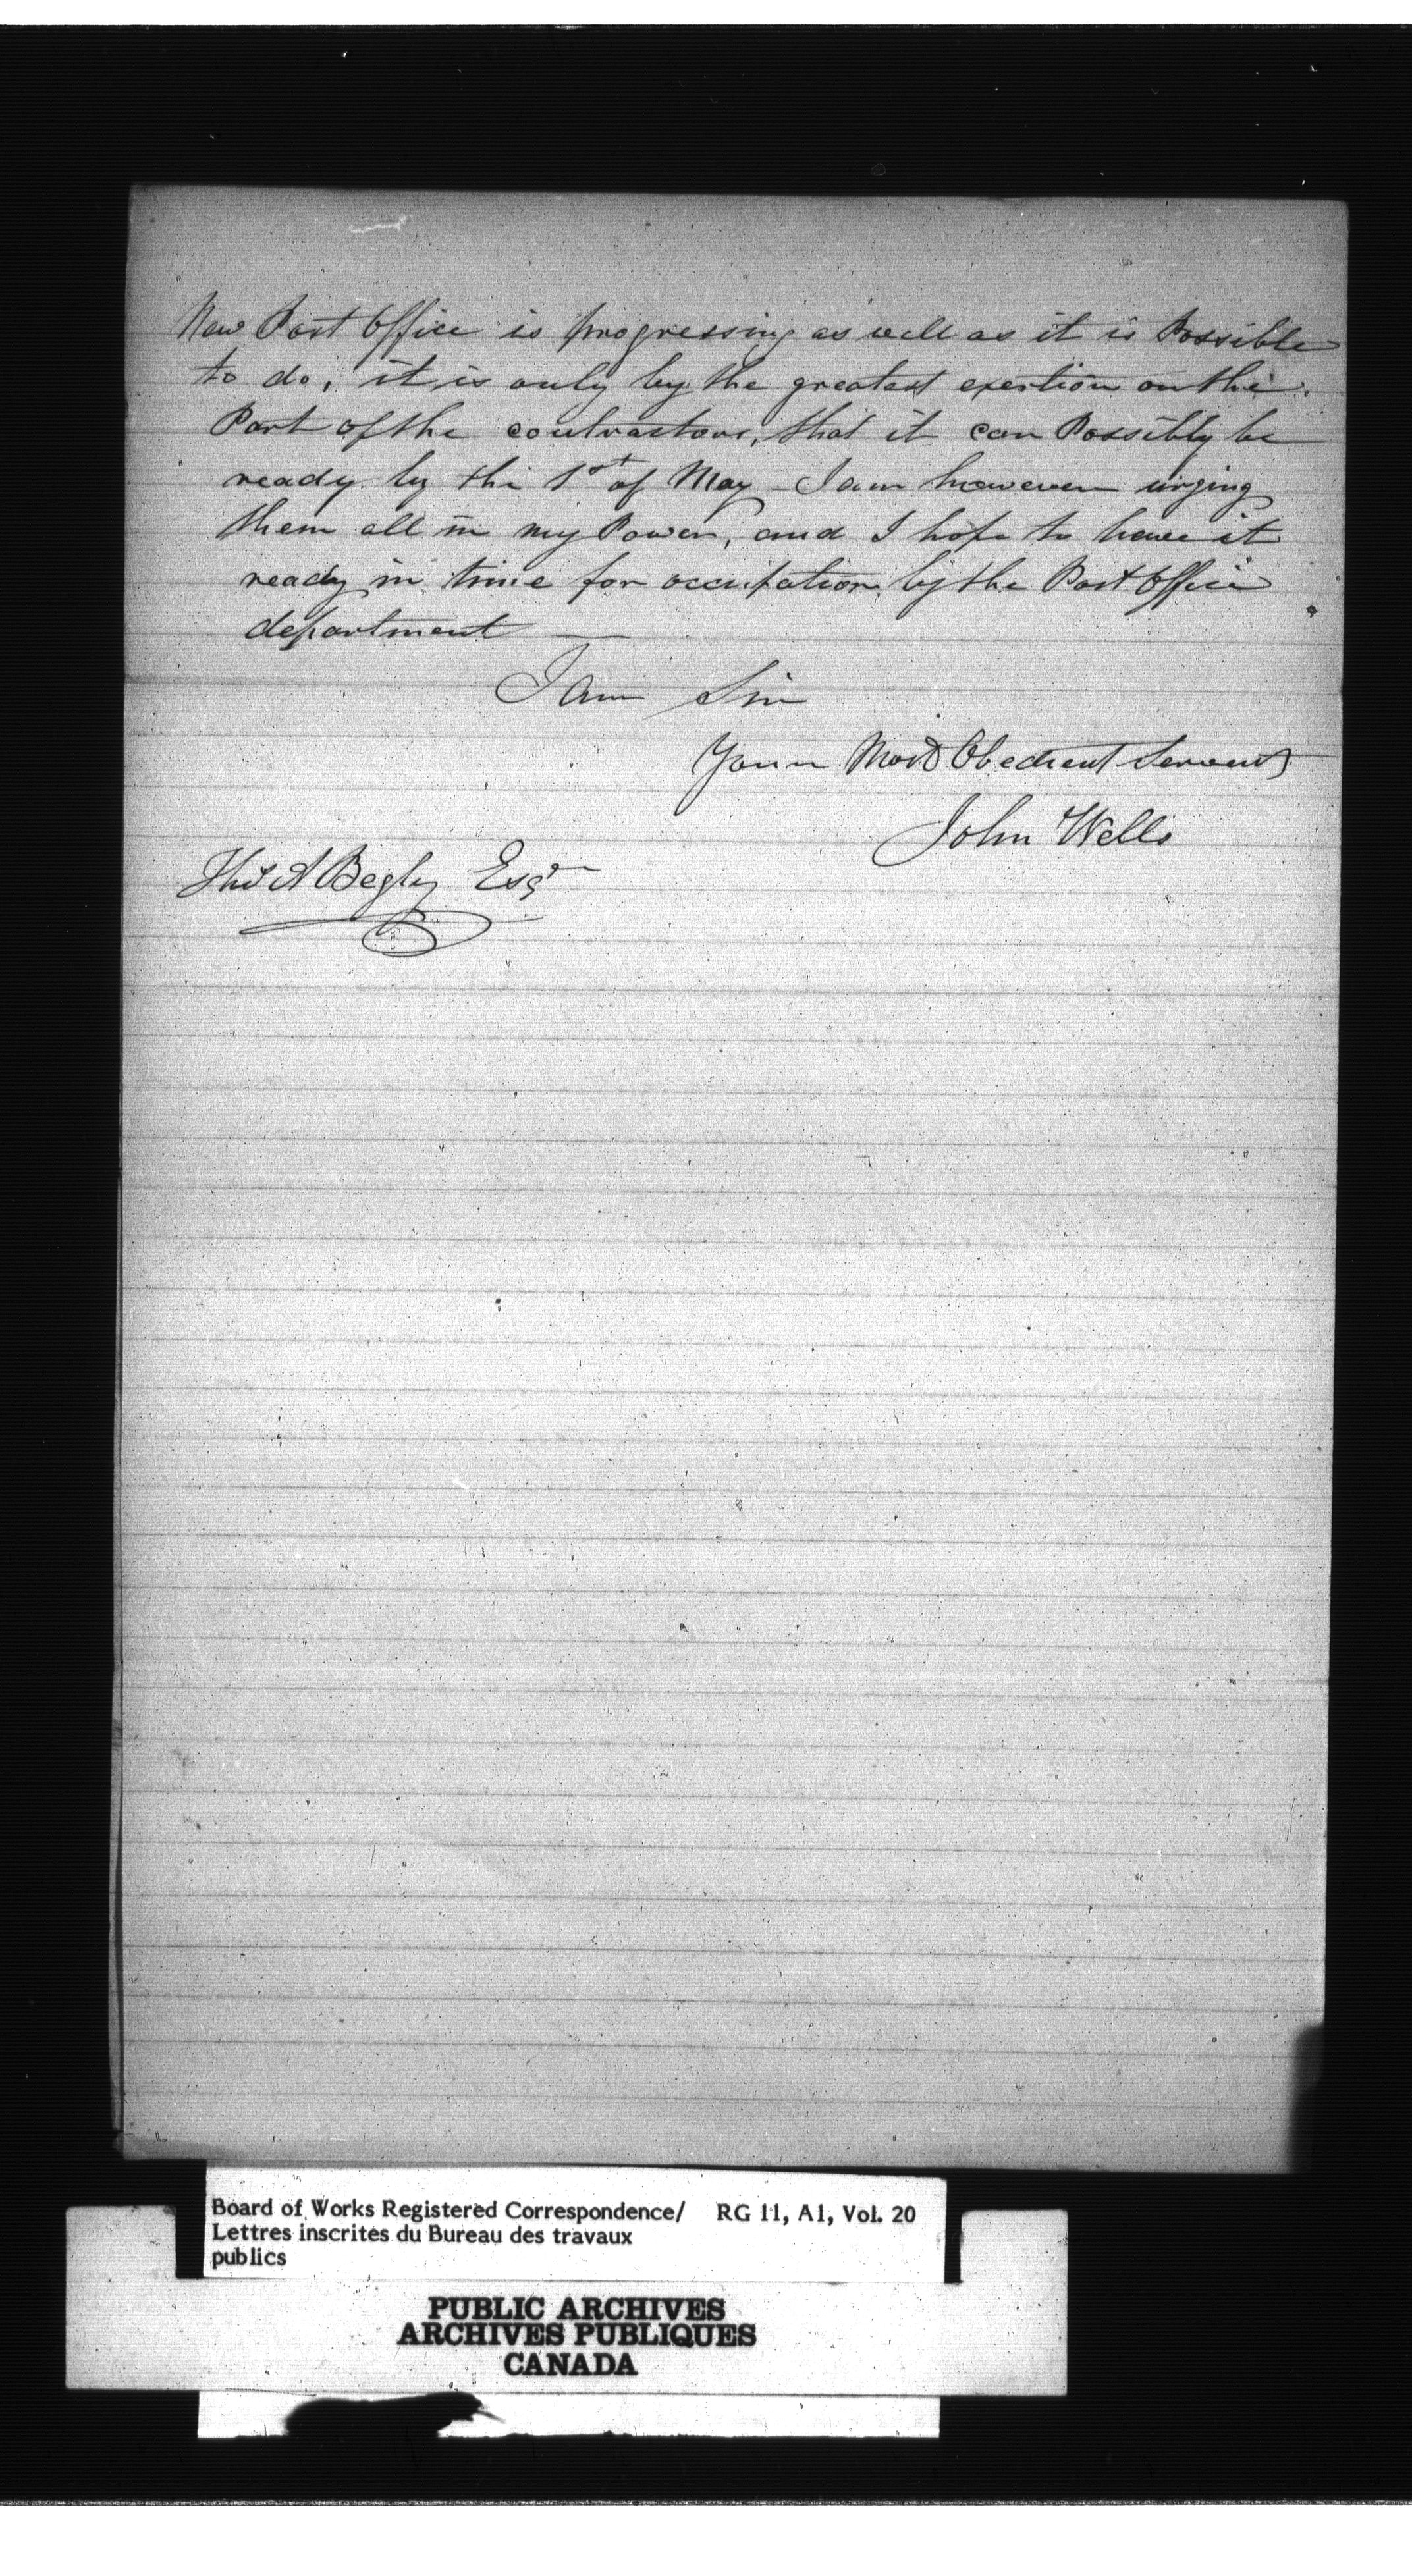 New Post Office is progressing as well as it is Possible
to do, it is only by the greatest exertion on the
Part of the contractors, that it can Possibly be
ready by the 1st of May – I am however urging
them all in my Power, and I hope to have it
ready in time for occupation by the Post Office
department —
I am Sir
Your Most Obedient Servant
John Wells
Thos A Begly Esqr
Board of Works Registered Correspondence/ RG 11, A1, Vol. 20
Lettres inscrites du Bureau des travaux
publics
PUBLIC ARCHIVES
ARCHIVES PUBLIQUES
CANADA